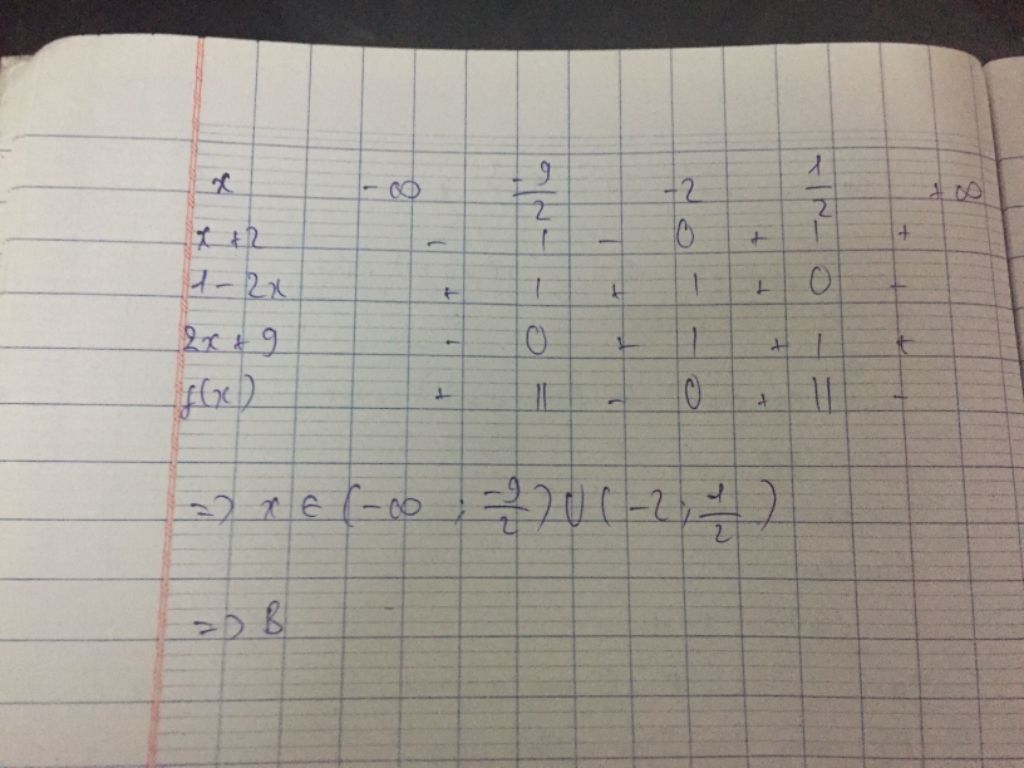 x -∞ -9/2 -2 1/2 +∞
x+2 - | - 0 + | +
1-2x + | + | + 0 -
2x+9 - 0 + | + | +
f(x) + || - 0 + || -
=> x ∈ (-∞ ; -9/2) ∪ (-2 ; 1/2)
=> B